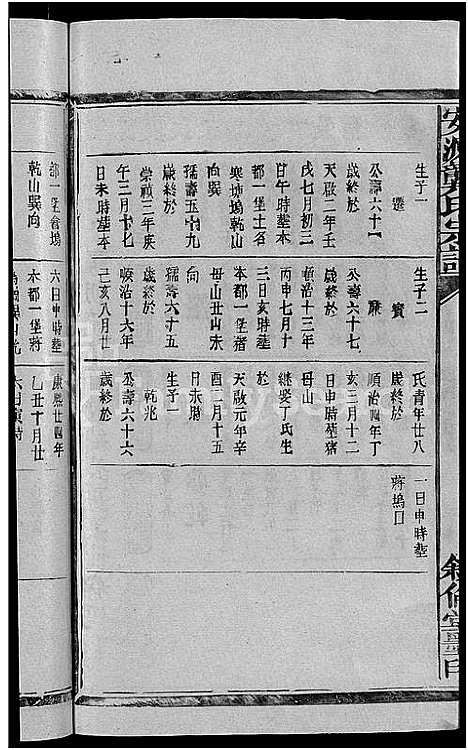 安源龔氏宗譜
敘倫堂重印
生子一
遷
公壽六十一
歲終於
天啟二年壬
戌七月初三
日午時塟本
都一堡土名
寒坳塢乾山
巽向
孺壽五十九
歲終於
崇禎三年庚
午三月十七
日未時塟本
生子二
寳
麻
公壽六十七
歲終於
順治十三年
丙申七月十
三日亥時塟
本都一堡猪
母山丑山未
向
孺壽六十五
歲終於
順治十六年
己亥八月廿
氏青年廿八
歲終於
順治四年丁
亥三月十二
日申時塟猪
母山
継娶丁氏生
於
天啟元年辛
酉三月十五
日未時
生子一
乾兆
公壽六十六
歲終於
一日申時塟
蔣塢口
都一堡會塢
乾山巽向
六日申時塟
本都一堡蔣
康熙廿四年
乙丑十月廿